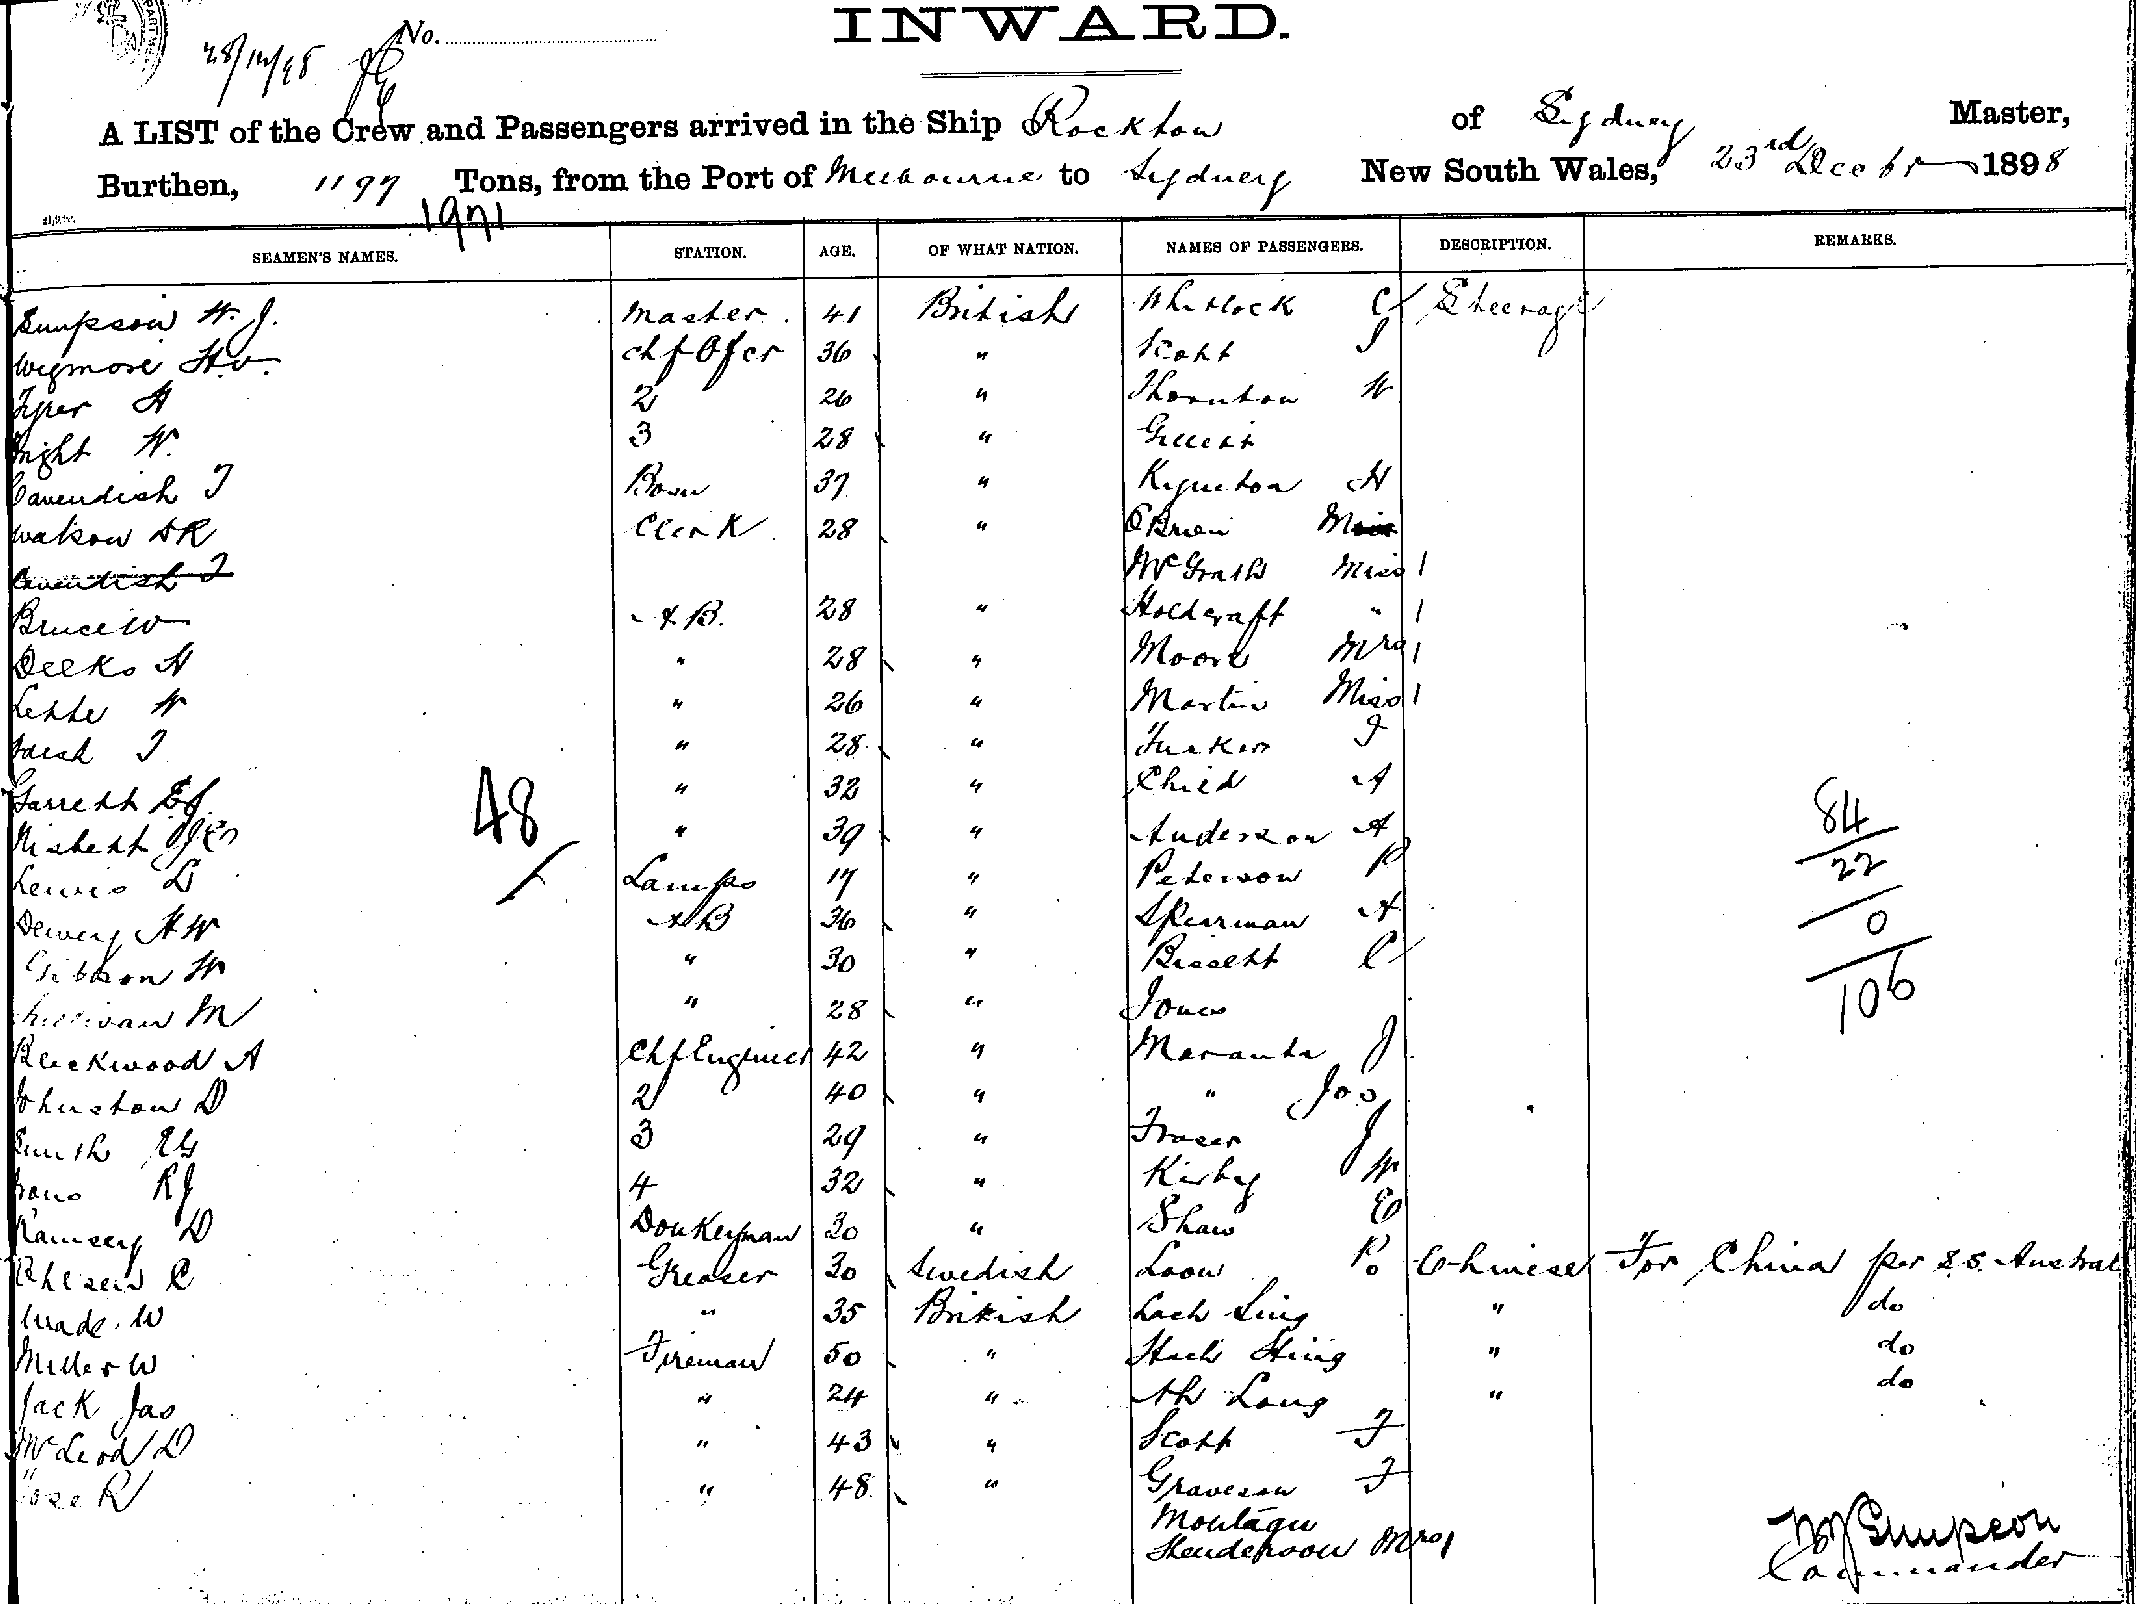 No.
INWARD.
28/12/98
A LIST of the Crew and Passengers arrived in the Ship Rockton of Sydney Master,
Burthen, 1197 Tons, from the Port of Melbourne to Sydney New South Wales, 23rd Decebr 1898
1971
SEAMEN'S NAMES. STATION. AGE. OF WHAT NATION. NAMES OF PASSENGERS. DESCRIPTION. REMARKS.
Simpson W. J. Master 41 British Whitlock C Steerage
Wigmore H.V. Chf Ofcr 36 " Scott J
Tyrer A 2 26 " Thornton W
W. 3 28 "
Cavendish T Bosn 37 " Kyneton H
Watson D R Clerk 28 " O'Brien
Cavendish T McGrath Miss 1
Bruce W A.B. 28 " Holdcraft " 1
Deeks H " 28 " Moore Mrs 1
W " 26 " Martin Miss 1
T " 28 " J
Garrett E.J. " 32 " Child A
Nisbett " 39 " Anderson A
Lewis D Lamps 17 " Peterson P
Dewey H W A B 36 " Speirman A
Gibson W " 30 " Bissett C
Sullivan M " 28 " Jones
Blackwood A Chf Engineer 42 " J
Johnston D 2 40 " " Jos
Smith E G 3 29 " Fraser J
R J 4 32 " Kirby W
Ramsey D Donkeyman 30 " Shaw E
C Greaser 30 Swedish Loow P. Chinese For China per S.S. Austral
Wade. W " 35 British Lach Sing " do
Miller W Fireman 50 " Hach Hing " do
Jack Jas " 24 " Ah Long " do
McLeod D " 43 " Scott F
R " 48 " Graveson F
Montagu
Henderson Mrs 1
48
84
22
0
106
W J Simpson
Commander